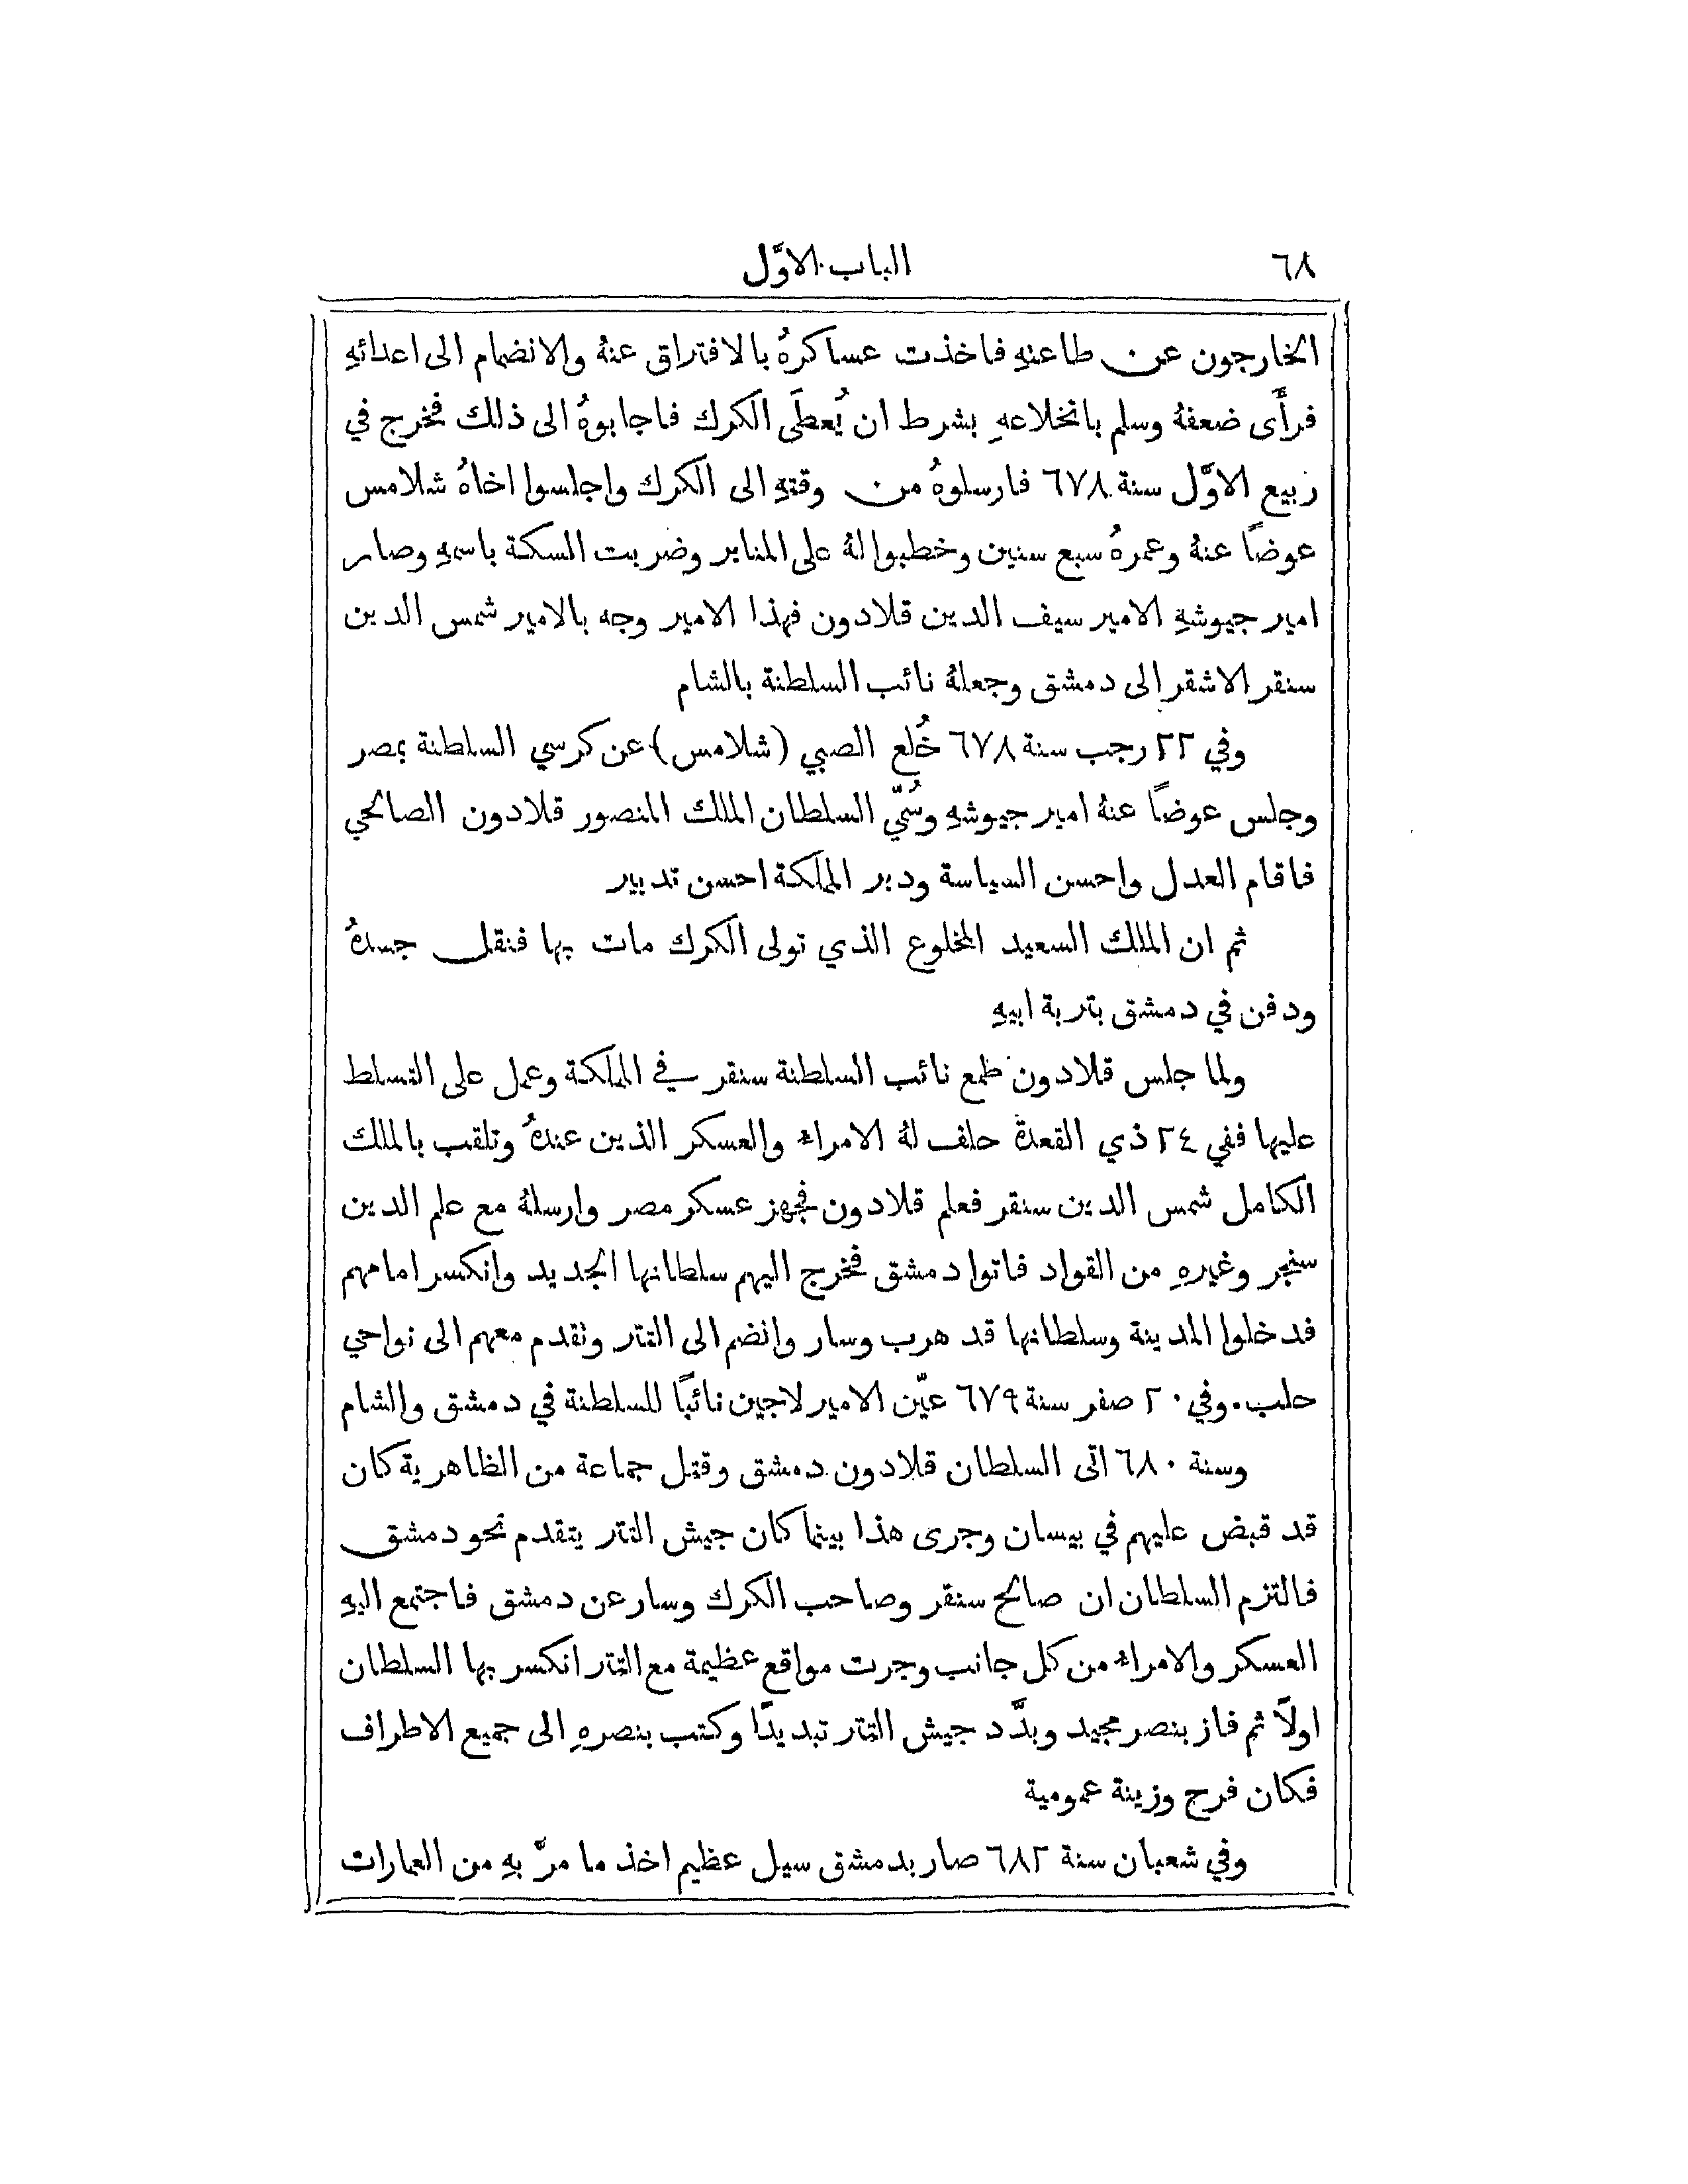 ٦٨
الباب الاوَّل
الخارجون عن طاعتهِ فاخذت عساكرهُ بالافتراق عنهُ والانضمام الى اعدائهِ
فرأَى ضعفهُ وسلم بانخلاعهِ بشرط ان يُعطَى الكرك فاجابوهُ الى ذلك فخرج في
ربيع الاوَّل سنة ٦٧٨ فارسلوهُ من وقتهِ الى الكرك واجلسوا اخاهُ شلامس
عوضاً عنهُ وعمرهُ سبع سنين وخطبوا لهُ على المنابر وضربت السكة باسمهِ وصار
امير جيوشهِ الامير سيف الدين قلادون فهذا الامير وجه بالامير شمس الدين
سنقر الاشقر الى دمشق وجعلهُ نائب السلطنة بالشام
وفي ٢٢ رجب سنة ٦٧٨ خُلع الصبي (شلامس) عن كرسي السلطنة بمصر
وجلس عوضاً عنهُ امير جيوشهِ وسُمّي السلطان الملك المنصور قلادون الصالحي
فاقام العدل واحسن السياسة ودبر المملكة احسن تدبير
ثم ان الملك السعيد المخلوع الذي تولى الكرك مات بها فنقل جسدهُ
ودفن في دمشق بتربة ابيهِ
ولما جلس قلادون طمع نائب السلطنة سنقر في المملكة وعمل على التسلط
عليها ففي ٢٤ ذي القعدة حلف لهُ الامراء والعسكر الذين عندهُ وتلقب بالملك
الكامل شمس الدين سنقر فعلم قلادون فجهز عسكر مصر وارسلهُ مع علم الدين
سنجر وغيرهِ من القواد فاتوا دمشق فخرج اليهم سلطانها الجديد وانكسر امامهم
فدخلوا المدينة وسلطانها قد هرب وسار وانضم الى التتر وتقدم معهم الى نواحي
حلب. وفي ٢٠ صفر سنة ٦٧٩ عيّن الامير لاجين نائباً للسلطنة في دمشق والشام
وسنة ٦٨٠ اتى السلطان قلادون دمشق وقتل جماعة من الظاهرية كان
قد قبض عليهم في بيسان وجرى هذا بينما كان جيش التتر يتقدم نحو دمشق
فالتزم السلطان ان صالح سنقر وصاحب الكرك وسار عن دمشق فاجتمع اليهِ
العسكر والامراء من كل جانب وجرت مواقع عظيمة مع التتر انكسر بها السلطان
اولاً ثم فاز بنصر مجيد وبدَّد جيش التتر تبديداً وكتب بنصرهِ الى جميع الاطراف
فكان فرح وزينة عمومية
وفي شعبان سنة ٦٨٢ صار بدمشق سيل عظيم اخذ ما مرّ بهِ من العمارات